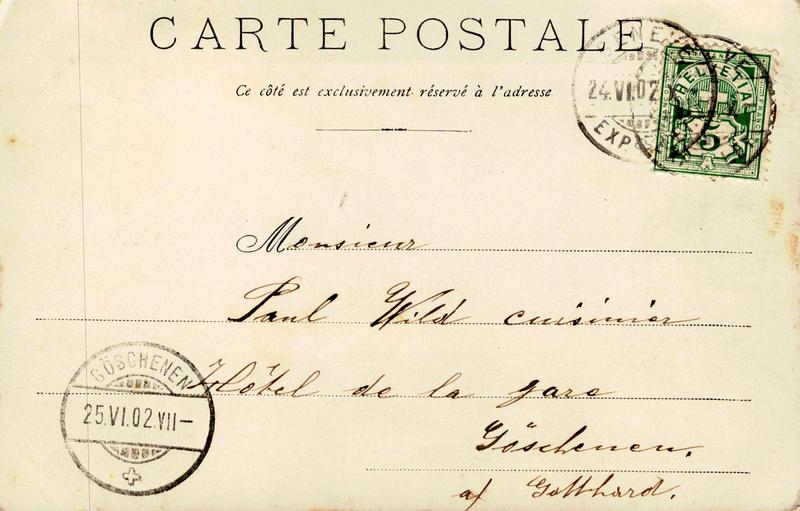 CARTE POSTALE
Ce côté est exclusivement réservé à l'adresse
24.VI.02
EXP
HELVETIA
5
Monsieur
Paul Wild cuisinier
Hôtel de la gare
Göschenen.
a/ Gotthard.
GÖSCHENEN
25.VI.02.VII—